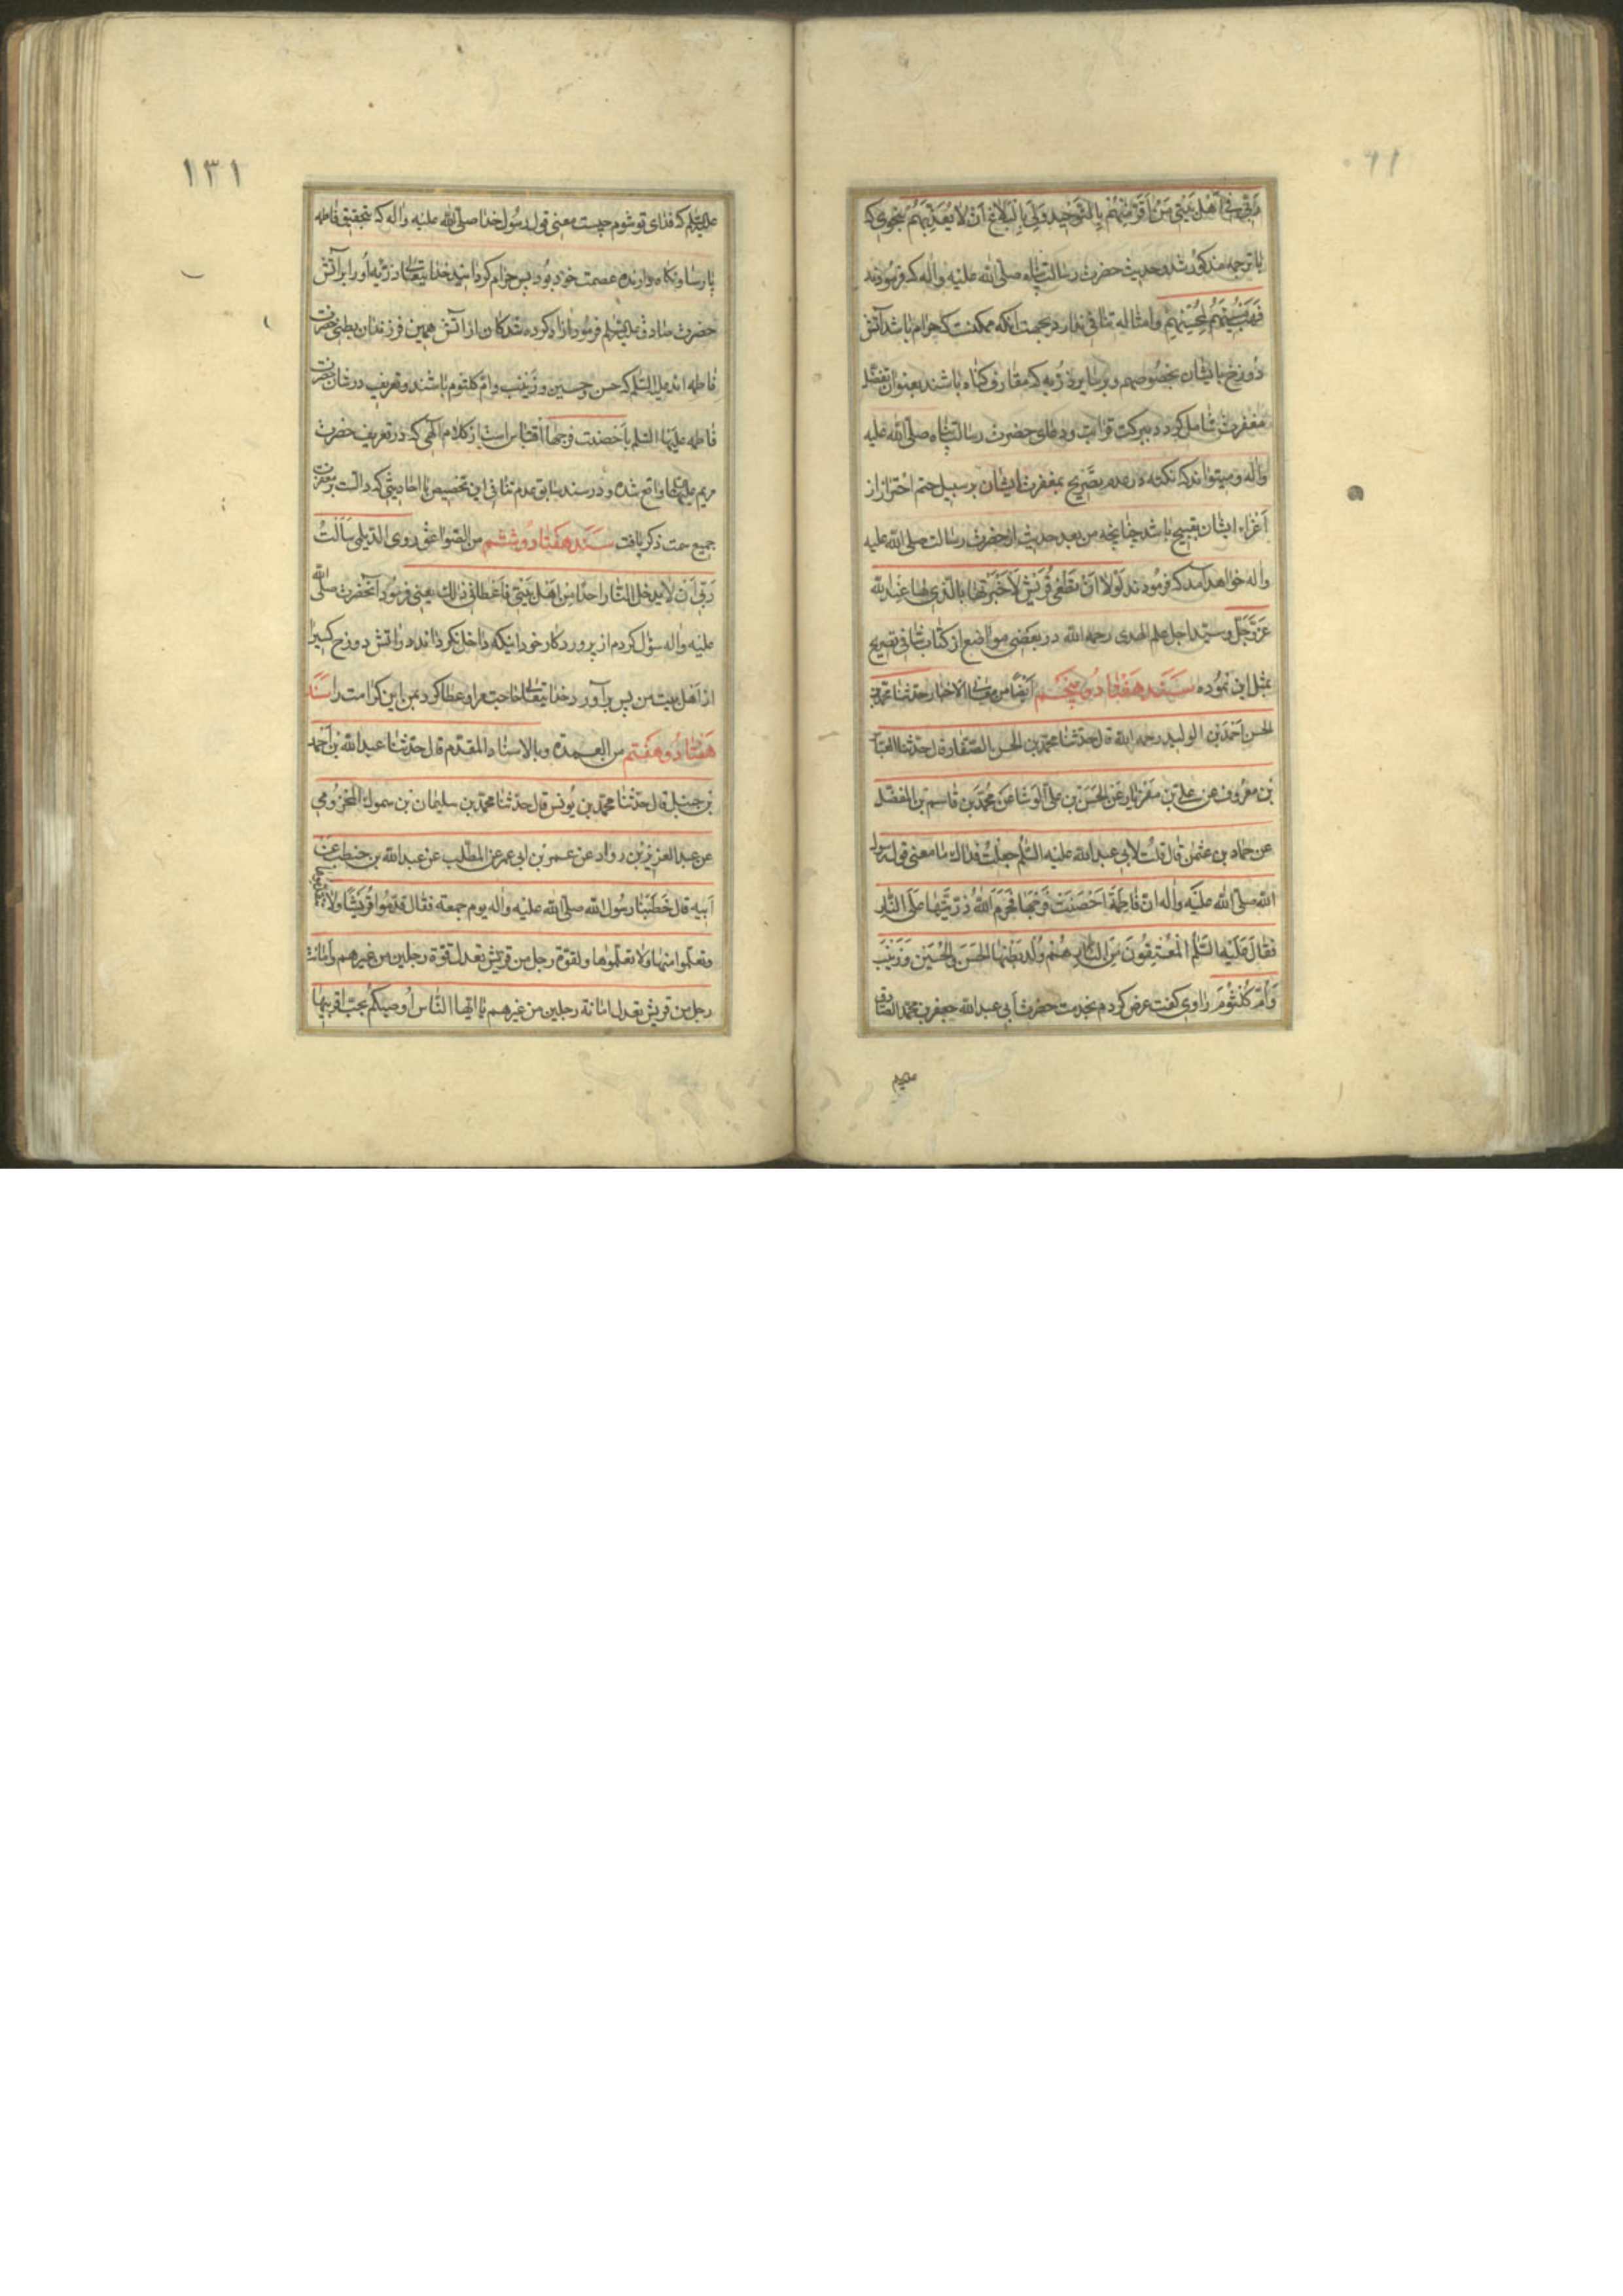 ربی فی اهل بیتی من اقر منهم بالتوحید ولی بالبلاغ ان لا یعذبهم بنحوی که
با ترجمه مذکور شد و حدیث حضرت رسالت پناه صلی الله علیه واله که فرمودند
فهب مسیئهم لمحسنهم وامثاله تنافی ندارد بجهت آنکه ممکنست که حرام باشد آتش
دوزخ بایشان بخصوصهم و بر سایر ذریه که مقارف کناه باشند بعنوان تفضل
مغفرت شامل کردد ببرکت قرابت و دعای حضرت رسالت پناه صلی الله علیه
واله و میتواند که نکته در عدم تصریح بمغفرت ایشان بر سبیل حتم احتراز از
اغراء ایشان بقبیح باشد چنانچه من بعد حدیث از حضرت رسالت صلی الله علیه
واله خواهد آمد که فرمودند لولا ان تطغی قریش لاخبرتها بالذی لها عند الله
عز وجل و سید اجل علم الهدی رحمه الله در بعضی مواضع از کتاب شافی تصریح
بمثل این نموده سند هفتاد و پنجم ایضا من معانی الاخبار حدثنا محمد بن
الحسن احمد بن الولید رحمه الله قال حدثنا محمد بن الحسن الصفار قال حدثنا العباس
بن معروف عن علی بن مهزیار عن الحسن بن علی الوشا عن محمد بن قاسم بن الفضل
عن حماد بن عثمن قال قلت لابی عبد الله علیه السلم جعلت فداک ما معنی قول رسول
الله صلی الله علیه واله ان فاطمة احصنت فرجها فحرم الله ذریتها علی النار
فقال علیه السلم المعتقون من النار هم ولد بطنها الحسن والحسین وزینب
وام کلثوم راوی کفت عرض کردم بخدمت حضرت ابی عبد الله جعفر بن محمد الصادق
علیه
١٣١
علیه السلم که فدای تو شوم چیست معنی قول رسول خدا صلی الله علیه واله که بتحقیق فاطمه
پارسا و نکاه دارنده عصمت خود بود پس حرام کردانید خدایتعالی ذریه او را بر آتش
حضرت صادق علیه السلم فرمود آزاد کرده شدکان از آتش همین فرزندان بطنی حضرت
فاطمه اند علیها السلم که حسن و حسین و زینب و ام کلثوم باشند و تعریف در شان حضرت
فاطمه علیها السلم با احصنت فرجها اقتباس است از کلام الهی که در تعریف حضرت
مریم علیها واقع شده و در سند سابق عدم تنافی این تخصیص با احادیثی که دالست بر مغفرت
جمیع سمت ذکر یافت سند هفتاد و ششم من الصواعق روی الدیلمی سالت
ربی ان لا یدخل النار احدا من اهل بیتی فاعطانی ذلک یعنی فرمود آنحضرت صلی الله
علیه واله سؤال کردم از پروردکار خود اینکه داخل نکرداند در آتش دوزخ کسیرا
از اهل بیت من پس برآورد خدایتعالی حاجت مرا و عطا کرد بمن این کرامت را سند
هفتاد و هفتم من العمدة وبالاسناد المقدم قال حدثنا عبد الله بن احمد
بن حنبل قال حدثنا محمد بن یونس قال حدثنا محمد بن سلیمان بن سمول المخزومی
عن عبد العزیز بن رواد عن عمر بن ابی عمر عن المطلب عن عبد الله بن حنطب عن
ابیه قال خطبنا رسول الله صلی الله علیه واله یوم جمعة فقال قدموا قریشا ولا تقدموها
وتعلموا منها ولا تعلموها ولقوة رجل من قریش تعدل قوة رجلین من غیرهم وامانت
رجل من قریش تعدل امانة رجلین من غیرهم یا ایها الناس اوصیکم بحب اقربیها